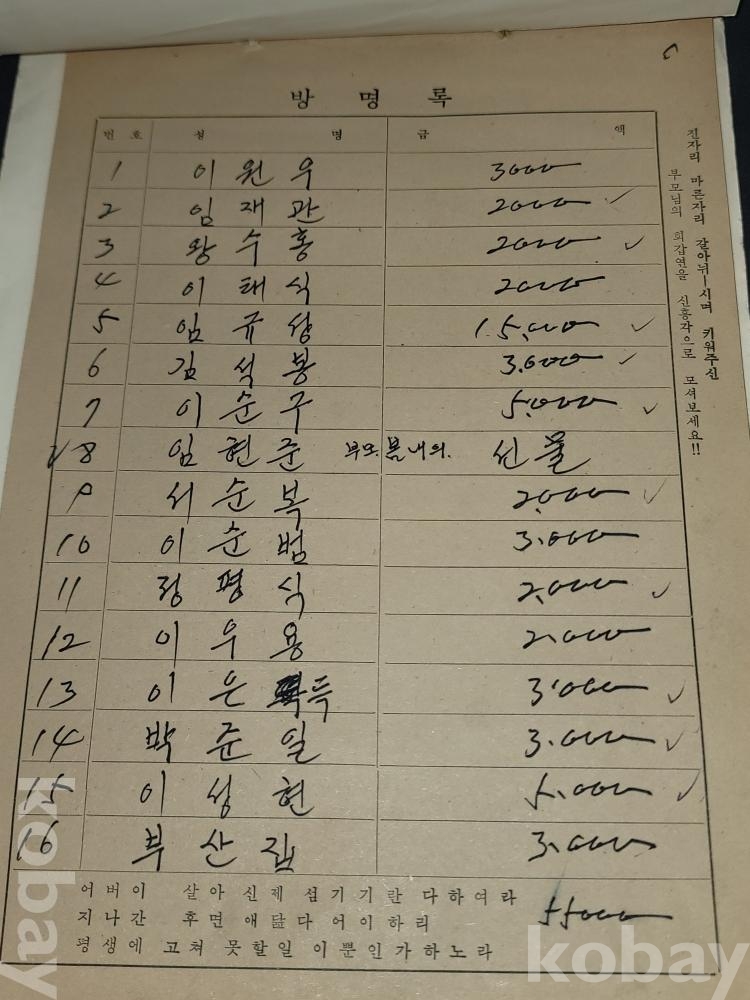 방 명 록
번 호 성 명 금 액
1 이원우 3000
2 임재관 2000
3 왕수홍 2000
4 이태식 2000
5 임규성 15,000
6 김석봉 3.000
7 이순구 5,000
8 임현준 부모. 봄내의. 선물
9 서순복 2,000
10 이순범 3.000
11 정평식 2,000
12 이우용 2.000
13 이은득 3.000
14 박준일 3.000
15 이성현 5.000
16 부산집 3.000
55000
어버이 살아 신제 섬기기란 다하여라
지나간 후면 애닯다 어이하리
평생에 고쳐 못할일 이뿐인가하노라
진자리 마른자리 갈아뉘―시며 키워주신
부모님의 회갑연을 신흥각으로 모셔보세요!!
kobay
kobay